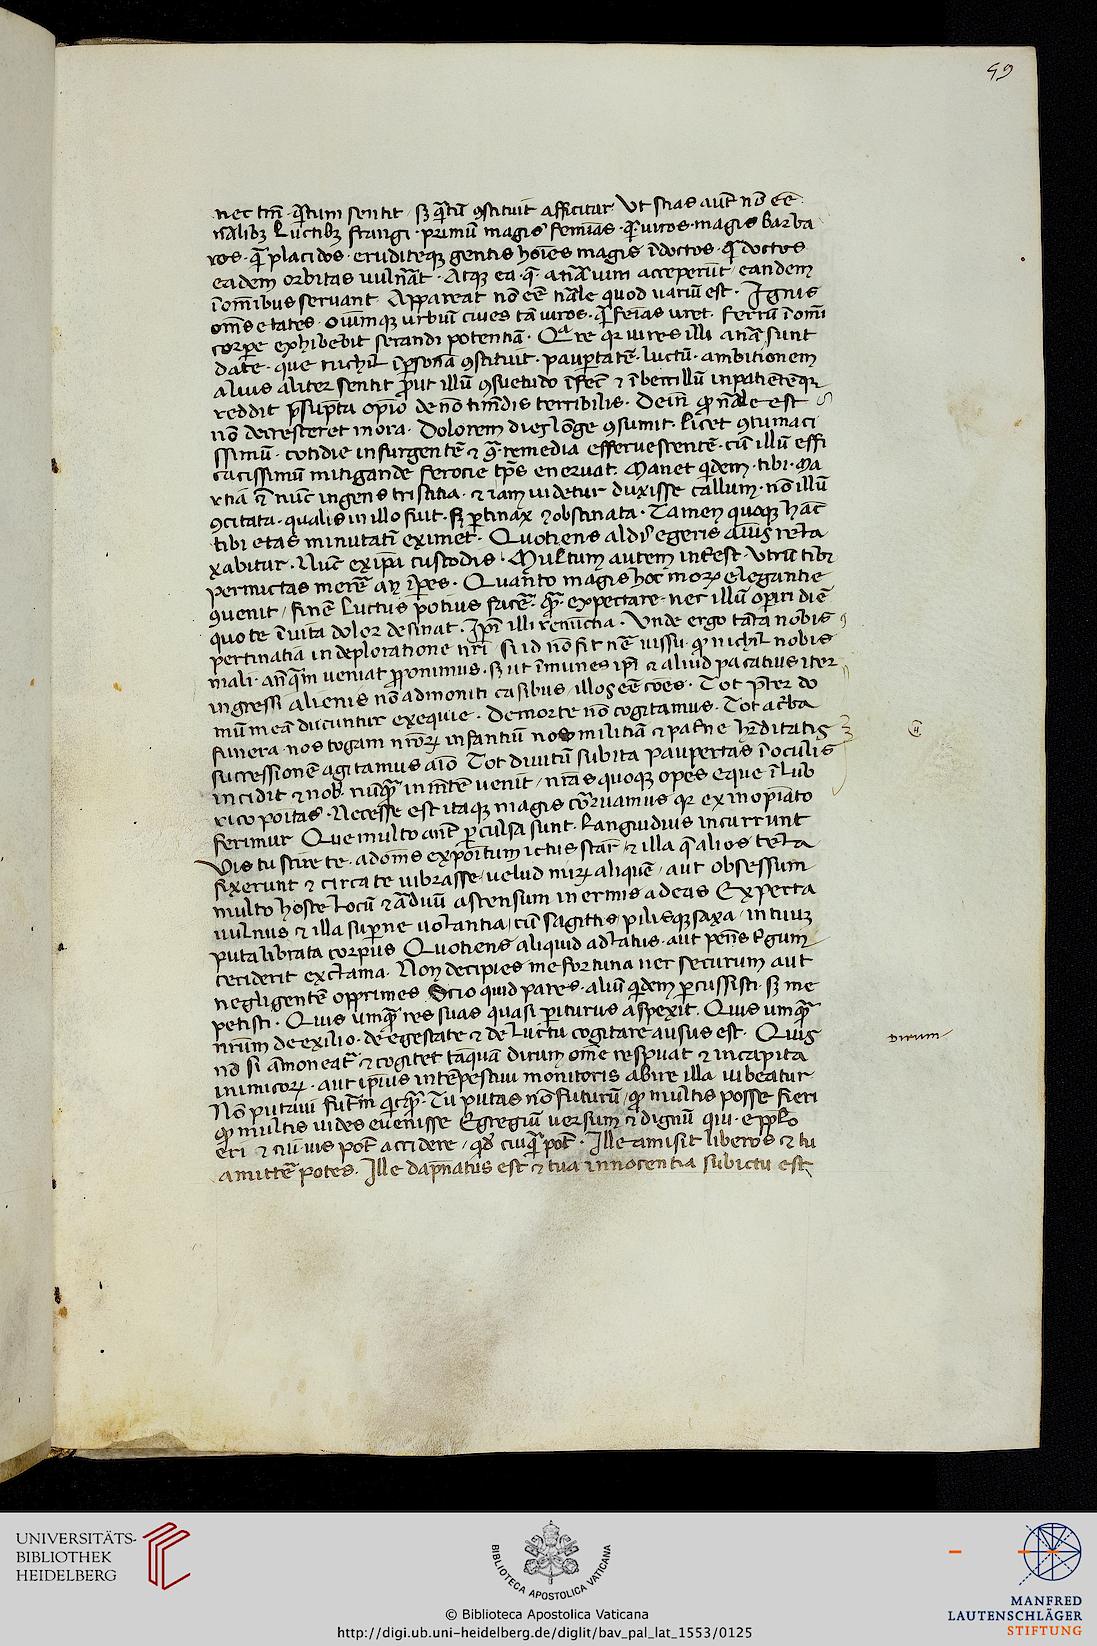 59
nec tm̄ · q̄ntum sentit / sꝫ q̄ntū ꝯstituit afficitur Vt scias aut̄ nō eē
nālibꝫ Luctibꝫ frangi · primū magis feminas · q̄ uiros · magis barba
ros · q̄ placidos · eruditeqꝫ gentis hoīes magis īdoctos · q̄ doctos
eadem orbitas uulnāt · Atqꝫ ea · q̄ a nā uim acceperūt / eandem
ī omībus seruant Appareat nō eē nāle quod uariū est · Ignis
om̄s etates · oīumqꝫ urbiū ciues tā uiros · q̄ feīas uret · Ferrū ī omī
corꝑe exhibebit secandi potentiā · Qare qꝛ uires illi a nā sunt
date · que nichil ī ꝑsonā ꝯstituit · pauꝑtatē · luctū · ambitionem
alius aliter sentit prout illū ꝯsuetudo īfec̄ ⁊ ībecillū inpatiētēqꝫ
reddit p̄supta opīo de nō timēdis terribilis · Dein̄ ꝙ nāle est
nō decresceret mora · Dolorem dies lōge ꝯsumit · licet ꝯtumaci
ssimū · cotidie insurgentē ⁊ ꝯ̄ remedia efferuescentē · cū illū effi
cacissimū mitigande ferocie tp̄s eneruat · Manet q̇dem · tibi · Ma
rtia ēt nūc ingens tristitia · ⁊ iam uidetur duxisse callum · nō illū
ꝯcitata · qualis in illo fuit · sꝫ ꝑtinax ⁊ obstinata · Tamen quoqꝫ hāc
tibi etas minutatī eximet · Quotiens aliḋ egeris aīus rela
xabitur · Nūc ex ip̄a custodis · Multum autem int̄est · utrū tibi
permictas merē an īpes · Quanto magis hoc moꝝ elegantie
ꝯuenit / finē Luctus potius facē · q̄ · expectare · nec illū oꝑiri diē
quo te īuita dolor desinat · Ipī illi renūcia · Vnde ergo tāta nobis
pertinatia in deploratione nr̄i si id nō fit nē iussu · ꝙ nichil nobis
mali · anq̄m ueniat proponimus · sꝫ ut īmunes ip̄i ⁊ aliud pacatius iter
ingressi alienis nō admoniti casibus / illos eē cōes · Tot p̄ter do
mū meā ducuntur exequie · De morte nō cogitamus · Tot ac̄ba
funera · nos togam nr̄oꝝ infantiū nos militiā ⁊ pat̄ne h̄ditatis
successionē agitamus aīo Tot diuitū subita paupertas ī oculis
incidit ⁊ nob̄ nūq̄ in mētē uenit / nr̄as quoqꝫ opes eque ī lub
rico poitas · Necesse est itaqꝫ magis cōruamus qꝛ ex inopiato
ferimur Que multo ant̄ ꝑculsa sunt · Languidius incurrunt
Vis tu scire te · ad om̄s exp̄oītum ictus stare ⁊ illa q̄ alios tela
fixerunt ⁊ circa te uibrasse / uelud muꝝ aliquē / aut obsessum
multo hoste locū ⁊ arduū ascensum inermis adeas Experta
uulnus ⁊ illa suꝑne uolantia / cū sagittis / pilisqꝫ saxa / in tuūꝫ
puta librata corpus Quotiens aliquid ad latus · aut pen̄s t̄gum
ceciderit exclama · Non decipies me fortuna nec securum aut
negligentē opprimes Scio quid pares · aliū q̇dem ꝑcussisti · sꝫ me
petisti · Quis umq̄ res suas quasi ꝑiturus aspexit · Quis umq̄
nr̄um de exilio · de egestate ⁊ de Luctu cogitare ausus est · Quis
nō si amoneat̄ ⁊ cogitet taquā dirum ome respuat ⁊ in capita
inimicoꝝ · aut ip̄ius intēpestiui monitoris abire illa uibeatur
Nō putaui fut̄m q̇cq̄ · Tu putas nō futurū / ꝙ multis posse fieri
ꝙ multis uides euenisse Egregiū uersum ⁊ dignū qui ·
⁊ cui uis pot̄ accidere / qḋ cuiq̄ pot̄ · Ille amisit liberos ⁊ tu
amittē potes · Ille dāpnatus est ⁊ tua innocentia sub ictu est
dirum
UNIVERSITÄTS-
BIBLIOTHEK
HEIDELBERG
BIBLIOTECA APOSTOLICA VATICANA
© Biblioteca Apostolica Vaticana
http://digi.ub.uni-heidelberg.de/diglit/bav_pal_lat_1553/0125
MANFRED
LAUTENSCHLÄGER
STIFTUNG